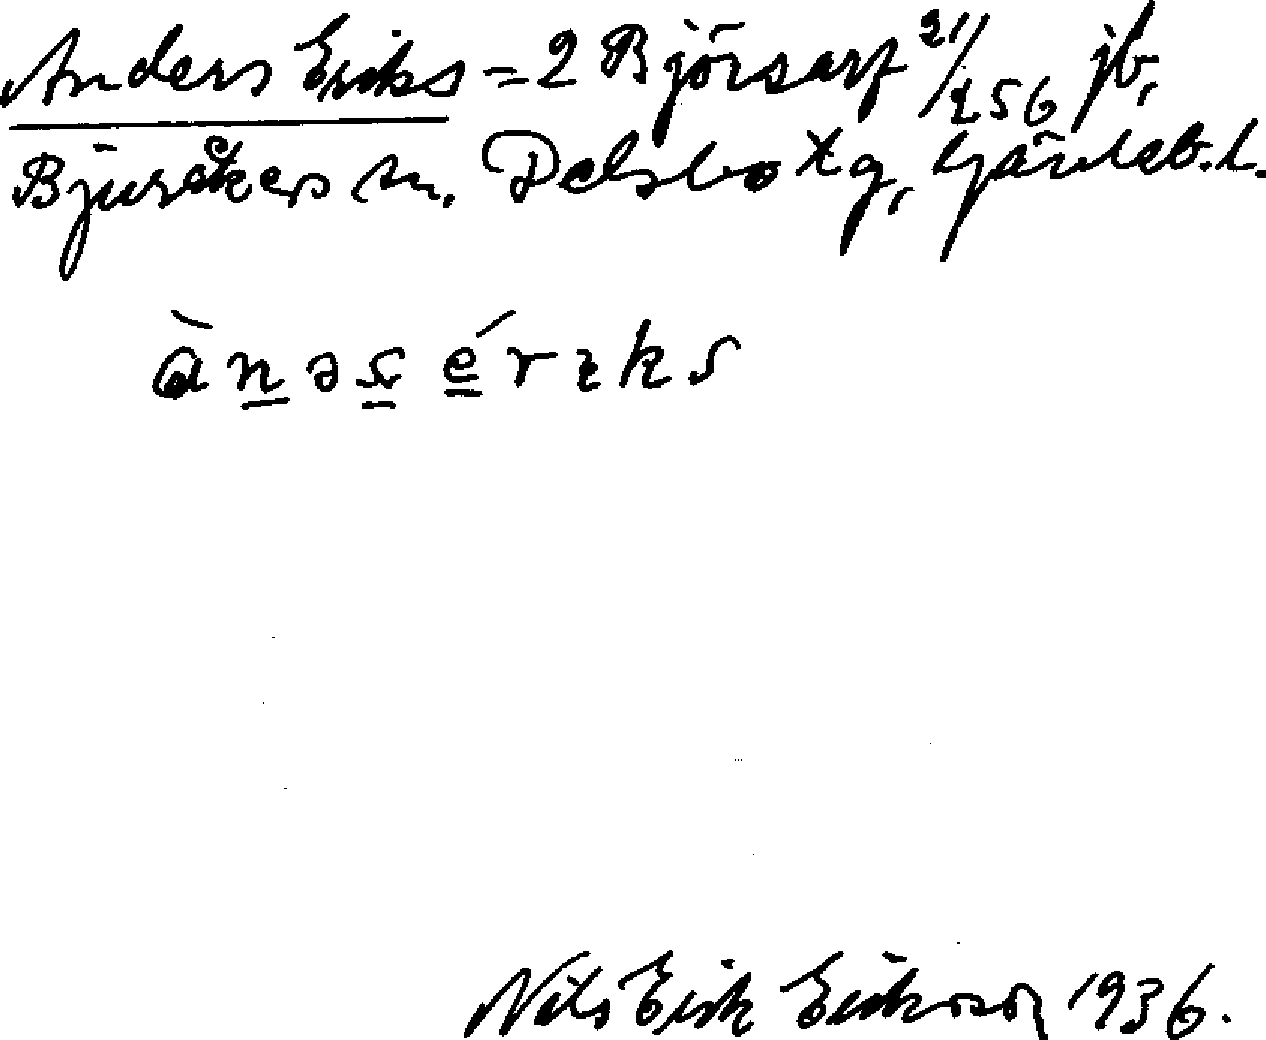 Anders Eriks = 2 Björsarf 21/256 jb,
Bjuråkers sn. Delsbo tg, Gävleb. l.
ànəs érɪks
Nils Erik Eriksson 1936.